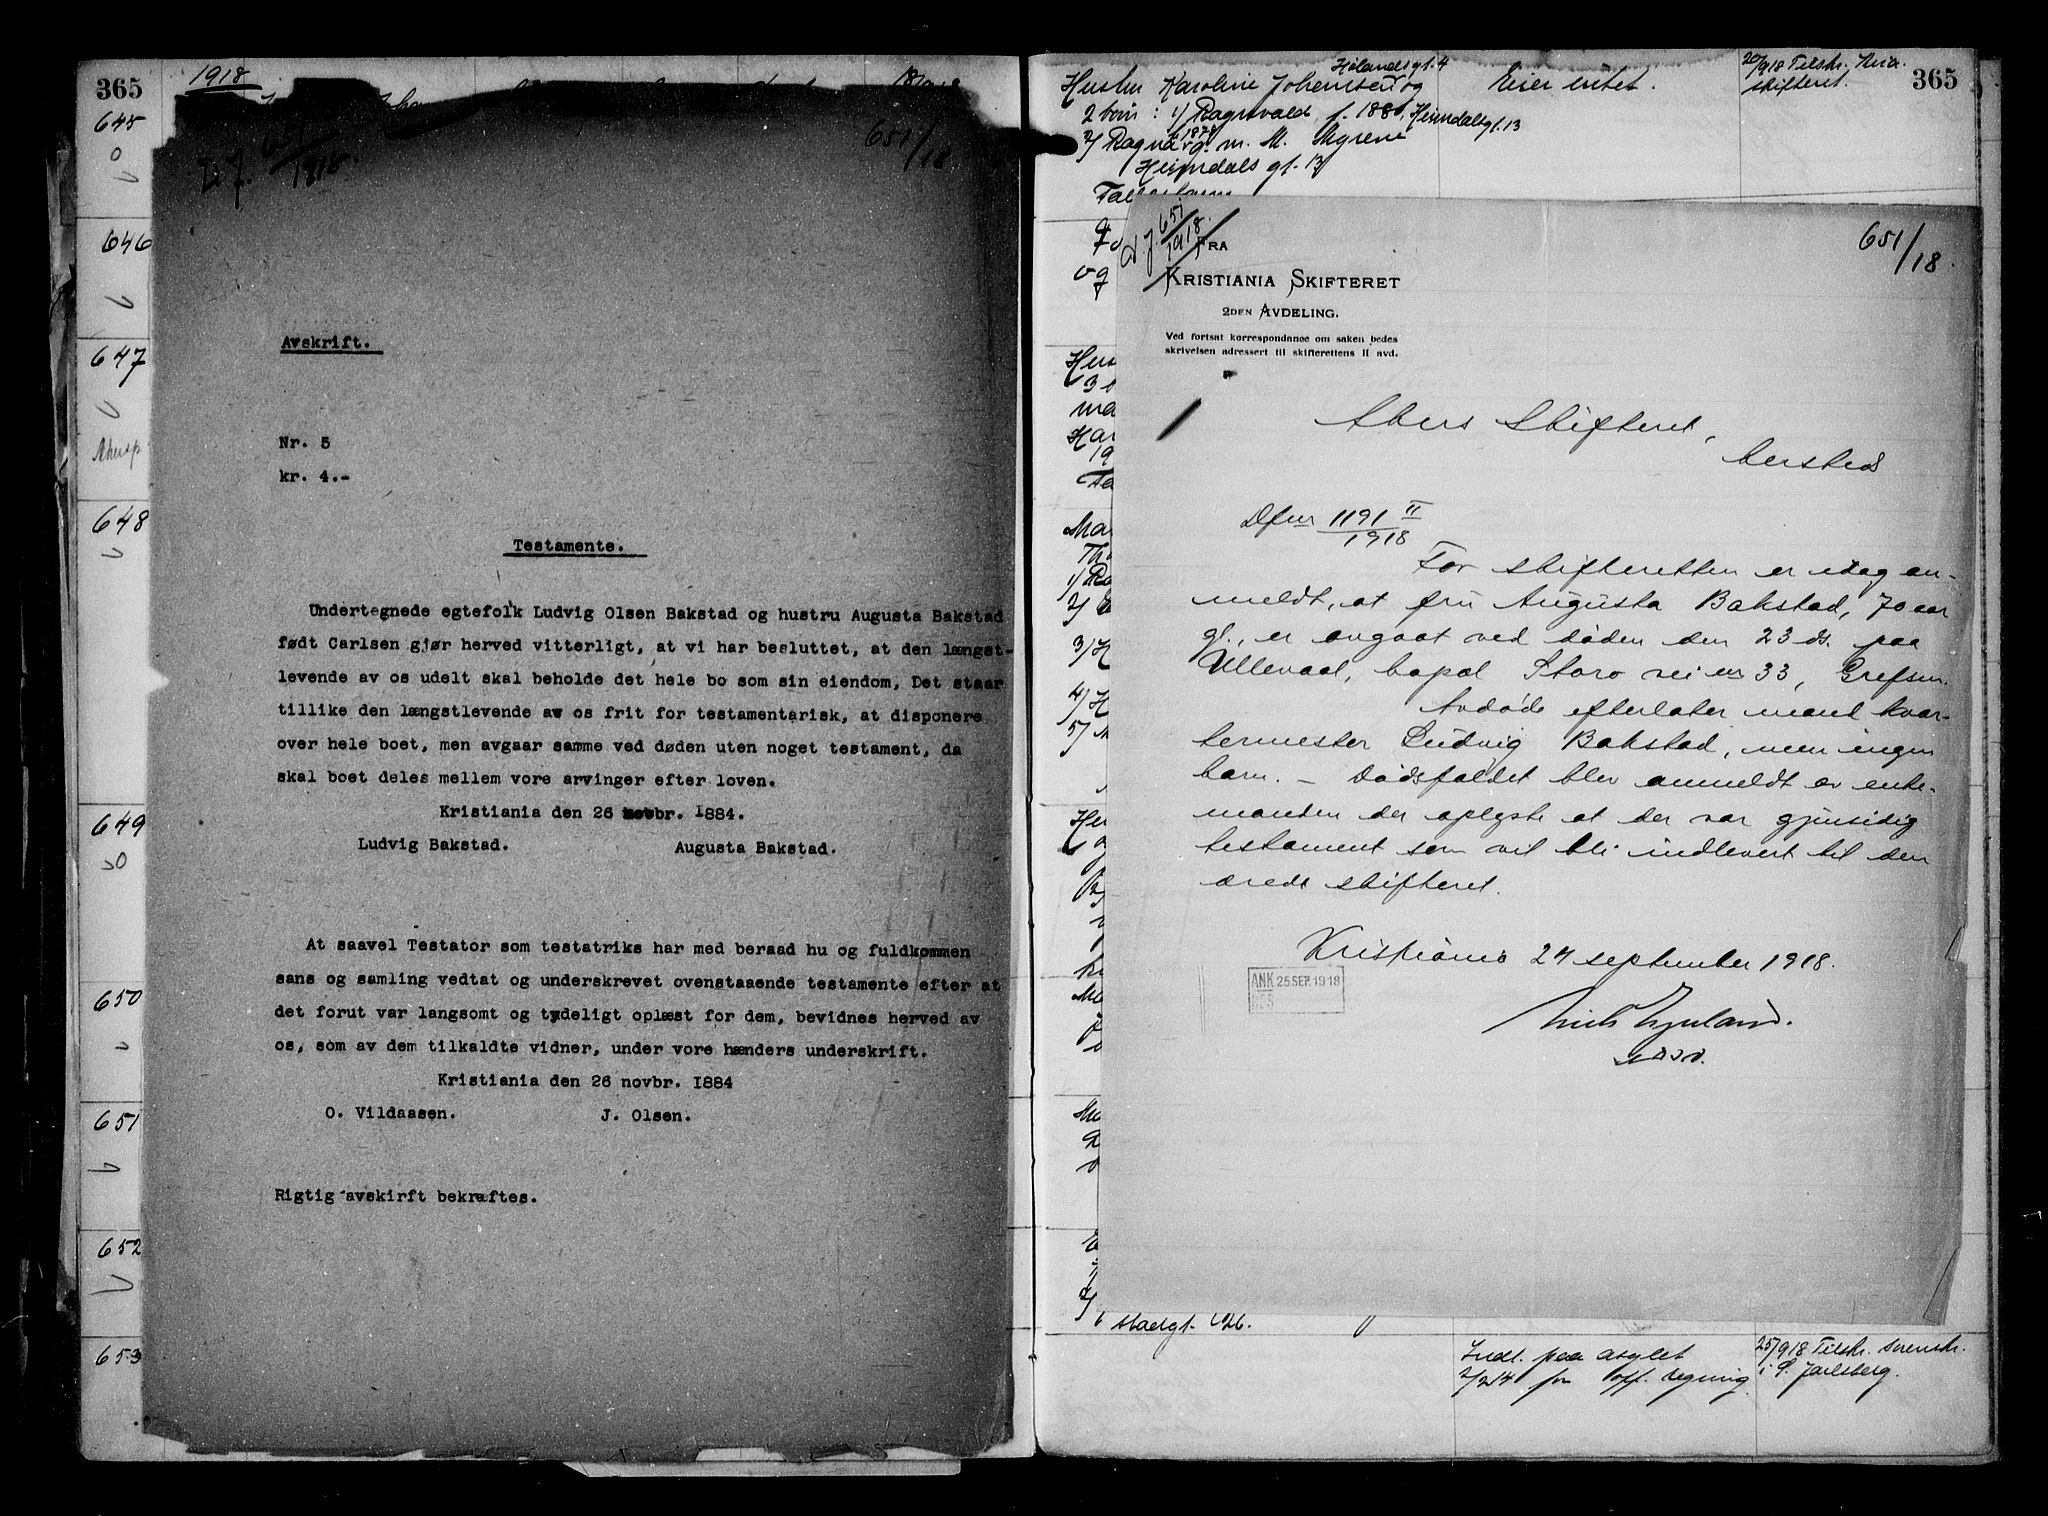 365
1918
645
646
647
Akersp
648
649
650
651
652
653
D. J. 651/1918.
651/18
Avskrift.
Nr. 5
kr. 4.-
Testamente.
Undertegnede egtefolk Ludvig Olsen Bakstad og hustru Augusta Bakstad
født Carlsen gjør herved vitterligt, at vi har besluttet, at den længst-
levende av os udelt skal beholde det hele bo som sin eiendom, Det staar
tillike den længstlevende av os frit for testamentarisk, at disponere
over hele boet, men avgaar samme ved døden uten noget testament, da
skal boet deles mellem vore arvinger efter loven.
Kristiania den 26 novbr. 1884.
Ludvig Bakstad. Augusta Bakstad.
At saavel Testator som testatriks har med beraad hu og fuldkommen
sans og samling vedtat og underskrevet ovenstaaende testamente efter at
det forut var langsomt og tydeligt oplæst for dem, bevidnes herved av
os, som av dem tilkaldte vidner, under vore hænders underskrift.
Kristiania den 26 novbr. 1884
O. Vildaasen. J. Olsen.
Rigtig avskirft bekræftes.
Hustru Karoline Johansen og Hølandsgt. 4
2 børn: 1/ Ragnvald, f. 1880, Heimdalsgt. 13
2/ Ragna f. 1878 g. m. M. Myrene
Heimdals gt. 13
Eier intet.
20/918 Tilskr. Kria.
skifteret.
365
D. J. 651/1918.
651/18.
FRA
KRISTIANIA SKIFTERET
2DEN AVDELING.
Ved fortsat korrespondanse om saken bedes
skrivelsen adressert til skifterettens II avd.
Akers Skifteret,
hersteds
Dfnr 1191 II/1918
For skifteretten er idag an-
meldt, at fru Augusta Bakstad, 70 aar
gl., er avgaat ved døden den 23 ds. paa
Ullevaal, bopæl Storo veien 33, Grefsen.
Avdøde efterlater mand kvar-
termester Ludvig Bakstad, men ingen
barn. – Dødsfaldet blev anmeldt av enke-
manden der oplyste at der var gjensidig
testament som vil bli indlevert til den
ærede skifteret.
Kristiania 24 september 1918.
ANK 25 SEP. 1918
stadgt. 26.
Indl. paa asylet
2/214 for off. regning.
25/918 Tilskr. sorenskr.
i S. Jarlsberg.